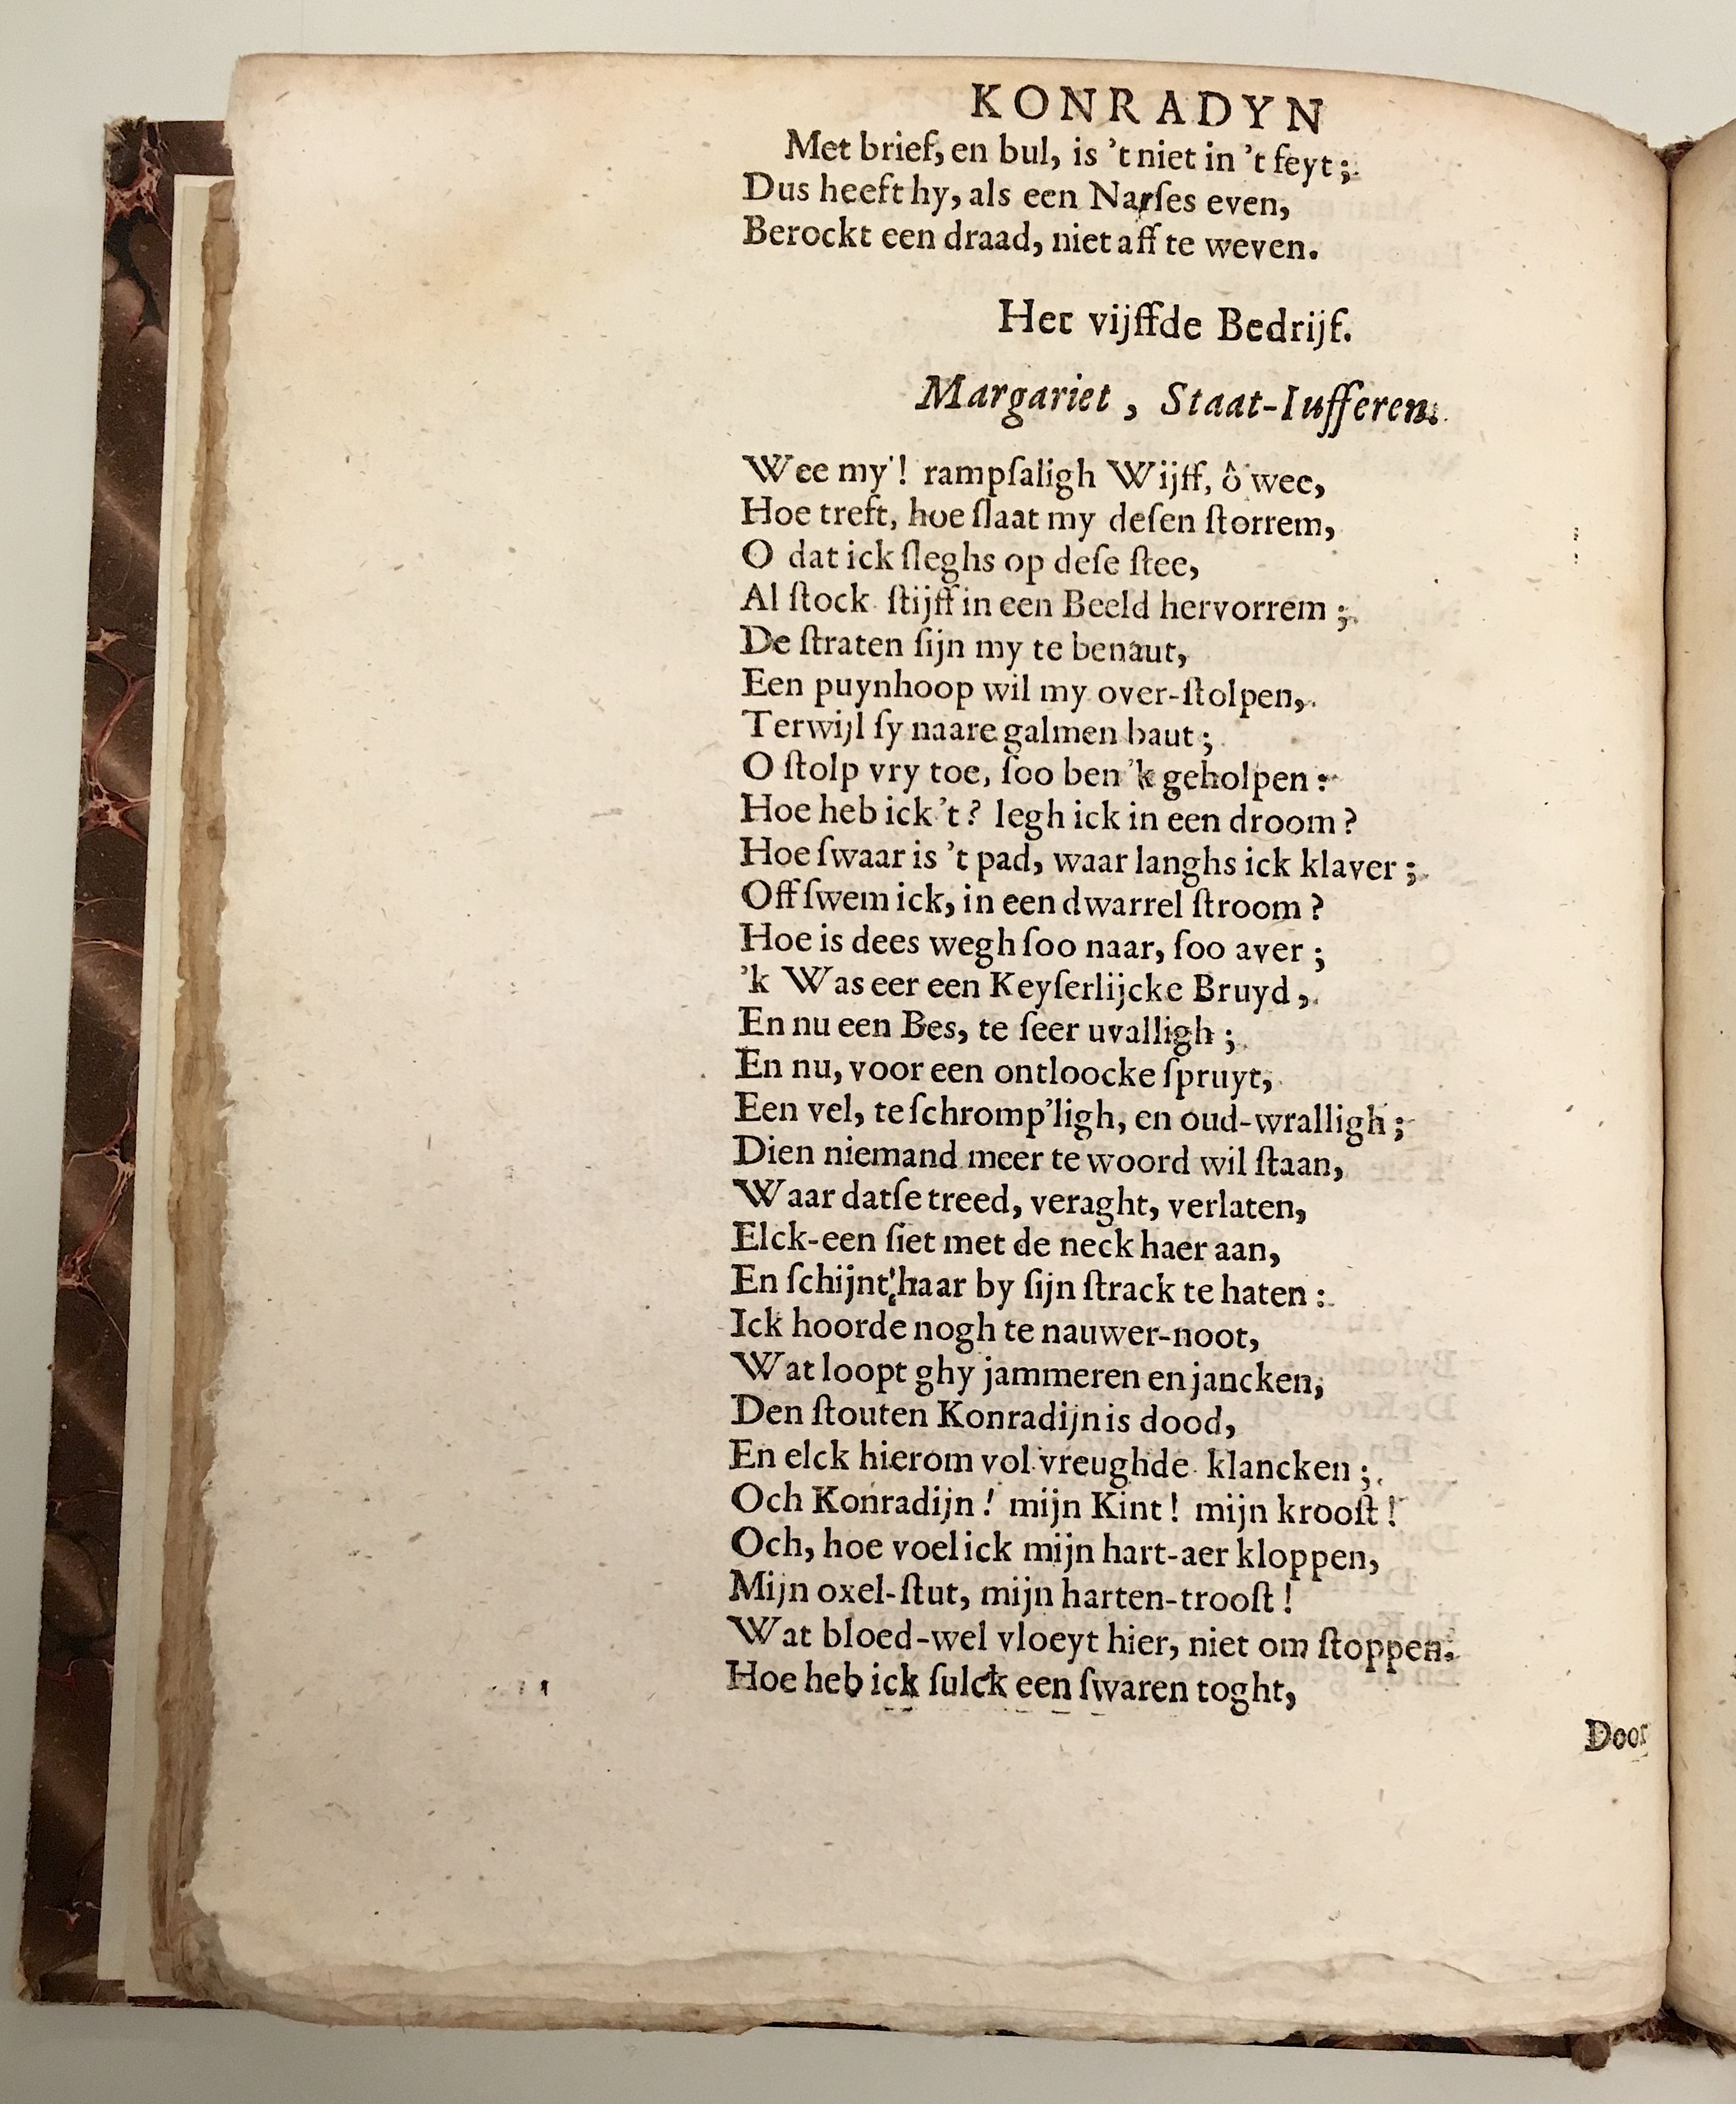 KONRADYN
Met brief, en bul, is 't niet in 't feyt;
Dus heeft hy, als een Narſes even,
Berockt een draad, niet aff te weven.
Het vijffde Bedrijf.
Margariet, Staat-Iufferen.
Wee my! rampſaligh Wijff, ô wee,
Hoe treft, hoe ſlaat my deſen ſtorrem,
O dat ick ſleghs op deſe ſtee,
Al ſtock ſtijff in een Beeld hervorrem;
De ſtraten ſijn my te benaut,
Een puynhoop wil my over-ſtolpen,
Terwijl ſy naare galmen baut;
O ſtolp vry toe, ſoo ben 'k geholpen:
Hoe heb ick 't? legh ick in een droom?
Hoe ſwaar is 't pad, waar langhs ick klaver;
Off ſwem ick, in een dwarrel ſtroom?
Hoe is dees wegh ſoo naar, ſoo aver;
'k Was eer een Keyſerlijcke Bruyd,
En nu een Bes, te ſeer uvalligh;
En nu, voor een ontloocke ſpruyt,
Een vel, te ſchromp'ligh, en oud-wralligh;
Dien niemand meer te woord wil ſtaan,
Waar datſe treed, veraght, verlaten,
Elck-een ſiet met de neck haer aan,
En ſchijnt haar by ſijn ſtrack te haten:
Ick hoorde nogh te nauwer-noot,
Wat loopt ghy jammeren en jancken,
Den ſtouten Konradijn is dood,
En elck hierom vol vreughde klancken;
Och Konradijn! mijn Kint! mijn krooſt!
Och, hoe voel ick mijn hart-aer kloppen,
Mijn oxel-ſtut, mijn harten-trooſt!
Wat bloed-wel vloeyt hier, niet om ſtoppen.
Hoe heb ick ſulck een ſwaren toght,
Door